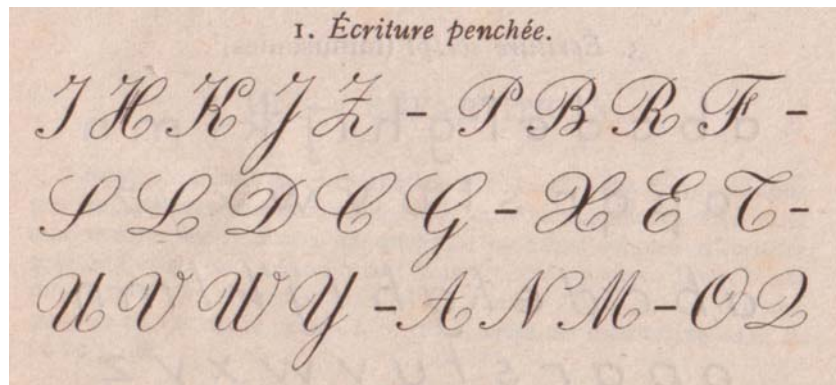 1. Écriture penchée.
I H K J Z - P B R F -
S L D C G - X E T -
U V W Y - A N M - O Q